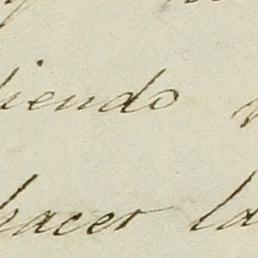 iendo
hacer la